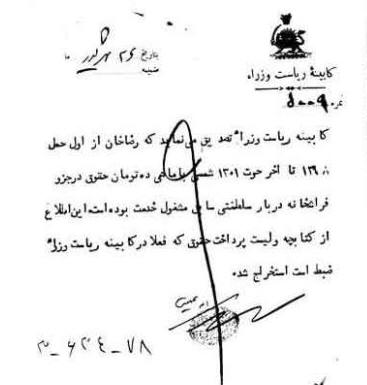 کابینهٔ ریاست وزراء
نمره ۵۰۰۹
بتاریخ ۲۶
ضمیمه
کابینه ریاست وزراء تصدیق می‌نماید که رضاخان از اول حمل
تا آخر حوت ۱۳۰۱ شمسی با ماهی ده تومان حقوق در جزو
فراشخانه دربار سلطنتی سابق مشغول خدمت بوده است این اطلاع
از کتابچه ولیست پرداخت حقوق که فعلا در کابینه ریاست وزراء
ضبط است استخراج شده